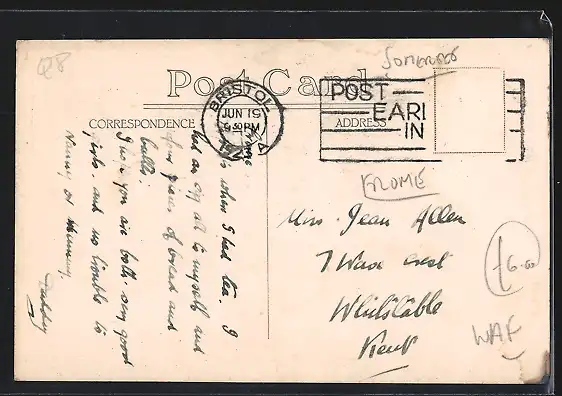 SOMERSET
Post Card
BRISTOL
JUN 19
9 30 PM
A
POST
EARL
IN
CORRESPONDENCE
ADDRESS
FROME
Miss Jean Allen
7 Wave crest
Whitstable
Kent
£6.00
WAF
when I had tea. I
had an egg all to myself and
pieces of bread and
butter.
I hope you are both very good
girls and no trouble to
Nanny or Mummy.
Daddy